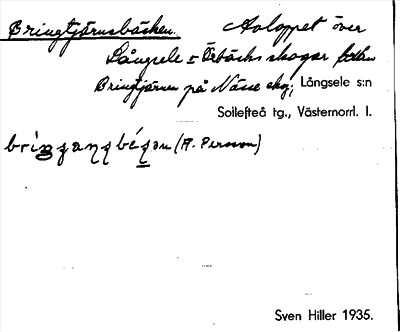 Bringtjärnsbäcken. Avloppet över
Långsele o Örbäcks skogar från
Bringtjärnen på Nässe skog; Långsele s:n
Sollefteå tg., Västernorrl. l.
(A. Persson)
Sven Hiller 1935.